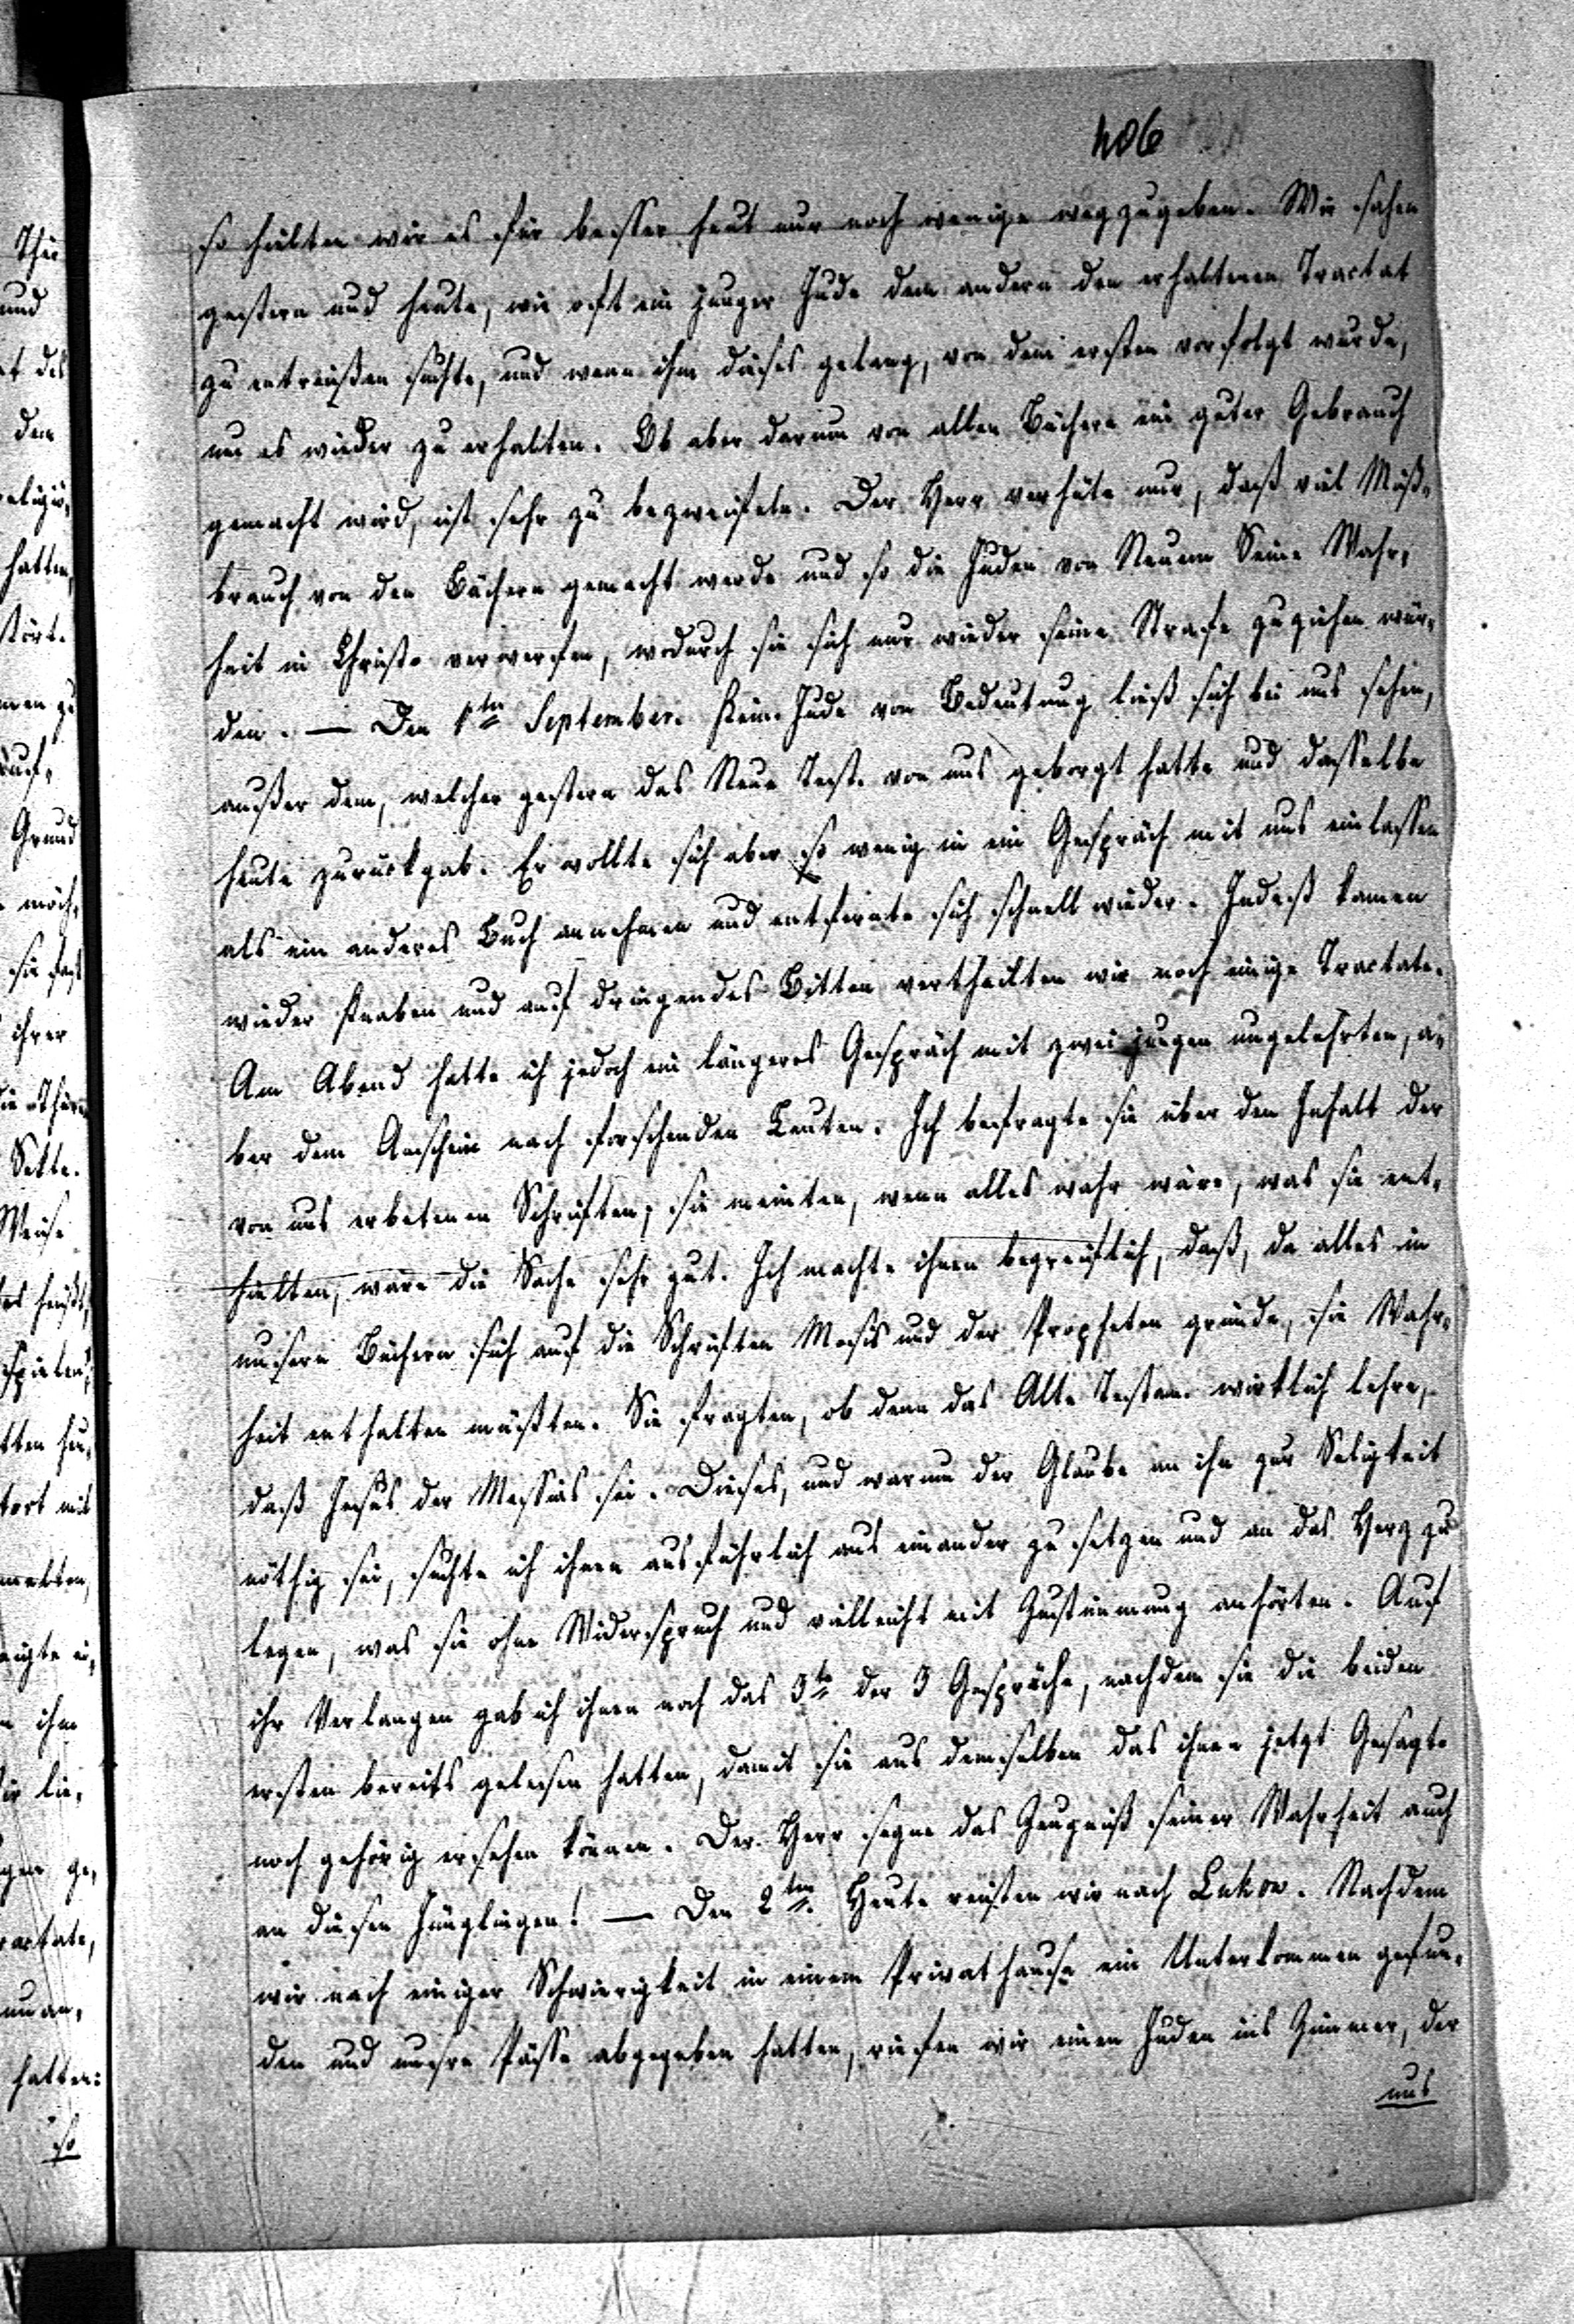 406
so hielten wir es für besser heut nur noch wenige wegzugeben. Wir sahen
gestern und heute, wie oft ein junger Jude dem andern den erhaltenen Tractat
zu entreißen suchte, und wenn ihm dieses gelang, von dem ersten verfolgt wurde,
um es wieder zu erhalten. Ob aber darum von allen Büchern ein guter Gebrauch
gemacht wird, ist sehr zu bezweifeln. Der Herr verhüte nur, daß viel Miß-
brauch von den Büchern gemacht werde und so die Juden von Neuem Seine Wahr-
heit in Christo verwerfen, wodurch sie sich nur wieder seine Strafe zuziehen wür-
den. — Den 1ten September. Kein Jude von Bedeutung ließ sich bei uns sehen,
außer dem, welcher gestern das Neue Test. von uns geborgt hatte und dasselbe
heute zurückgab. Er wollte sich aber so wenig in ein Gespräch mit uns einlassen
als ein anderes Buch annehmen und entfernte sich schnell wieder. Indeß kamen
wieder Knaben und auf dringendes Bitten vertheilten wir noch einige Tractate.
Am Abend hatte ich jedoch ein längeres Gespräch mit zwei jungen ungelehrten, a-
ber dem Anschein nach forschenden Leuten. Ich befragte sie über den Inhalt der
von uns erbetenen Schriften; sie meinten, wenn alles wahr wäre, was sie ent-
hielten, wäre die Sache sehr gut. Ich machte ihnen begreiflich, daß, da alles in
unsern Büchern sich auf die Schriften Mosis und der Propheten gründe, sie Wahr-
heit enthalten müßten. Sie fragten, ob denn das Alte Testam. wirklich lehre,
daß Jesus der Messias sei. Dieses, und warum der Glaube an ihn zur Seligkeit
nöthig sei, suchte ich ihnen ausführlich aus einander zu setzen und an das Herz zu
legen, was sie ohne Widerspruch und vielleicht mit Zustimmung anhörten. Auf
ihr Verlangen gab ich ihnen noch das 3te der 3 Gespräche, nachdem sie die beiden
ersten bereits gelesen hatten, damit sie aus demselben das ihnen jetzt Gesagte
noch gehörig ersehen können. Der Herr segne das Zeugniß seiner Wahrheit auch
an diesen Jünglingen! — Den 2ten. Heute reisten wir nach Lukow. Nachdem
wir nach einiger Schwierigkeit in einem Privathause ein Unterkommen gefun-
den und unsre Pässe abgegeben hatten, riefen wir einen Juden ins Zimmer, der
uns